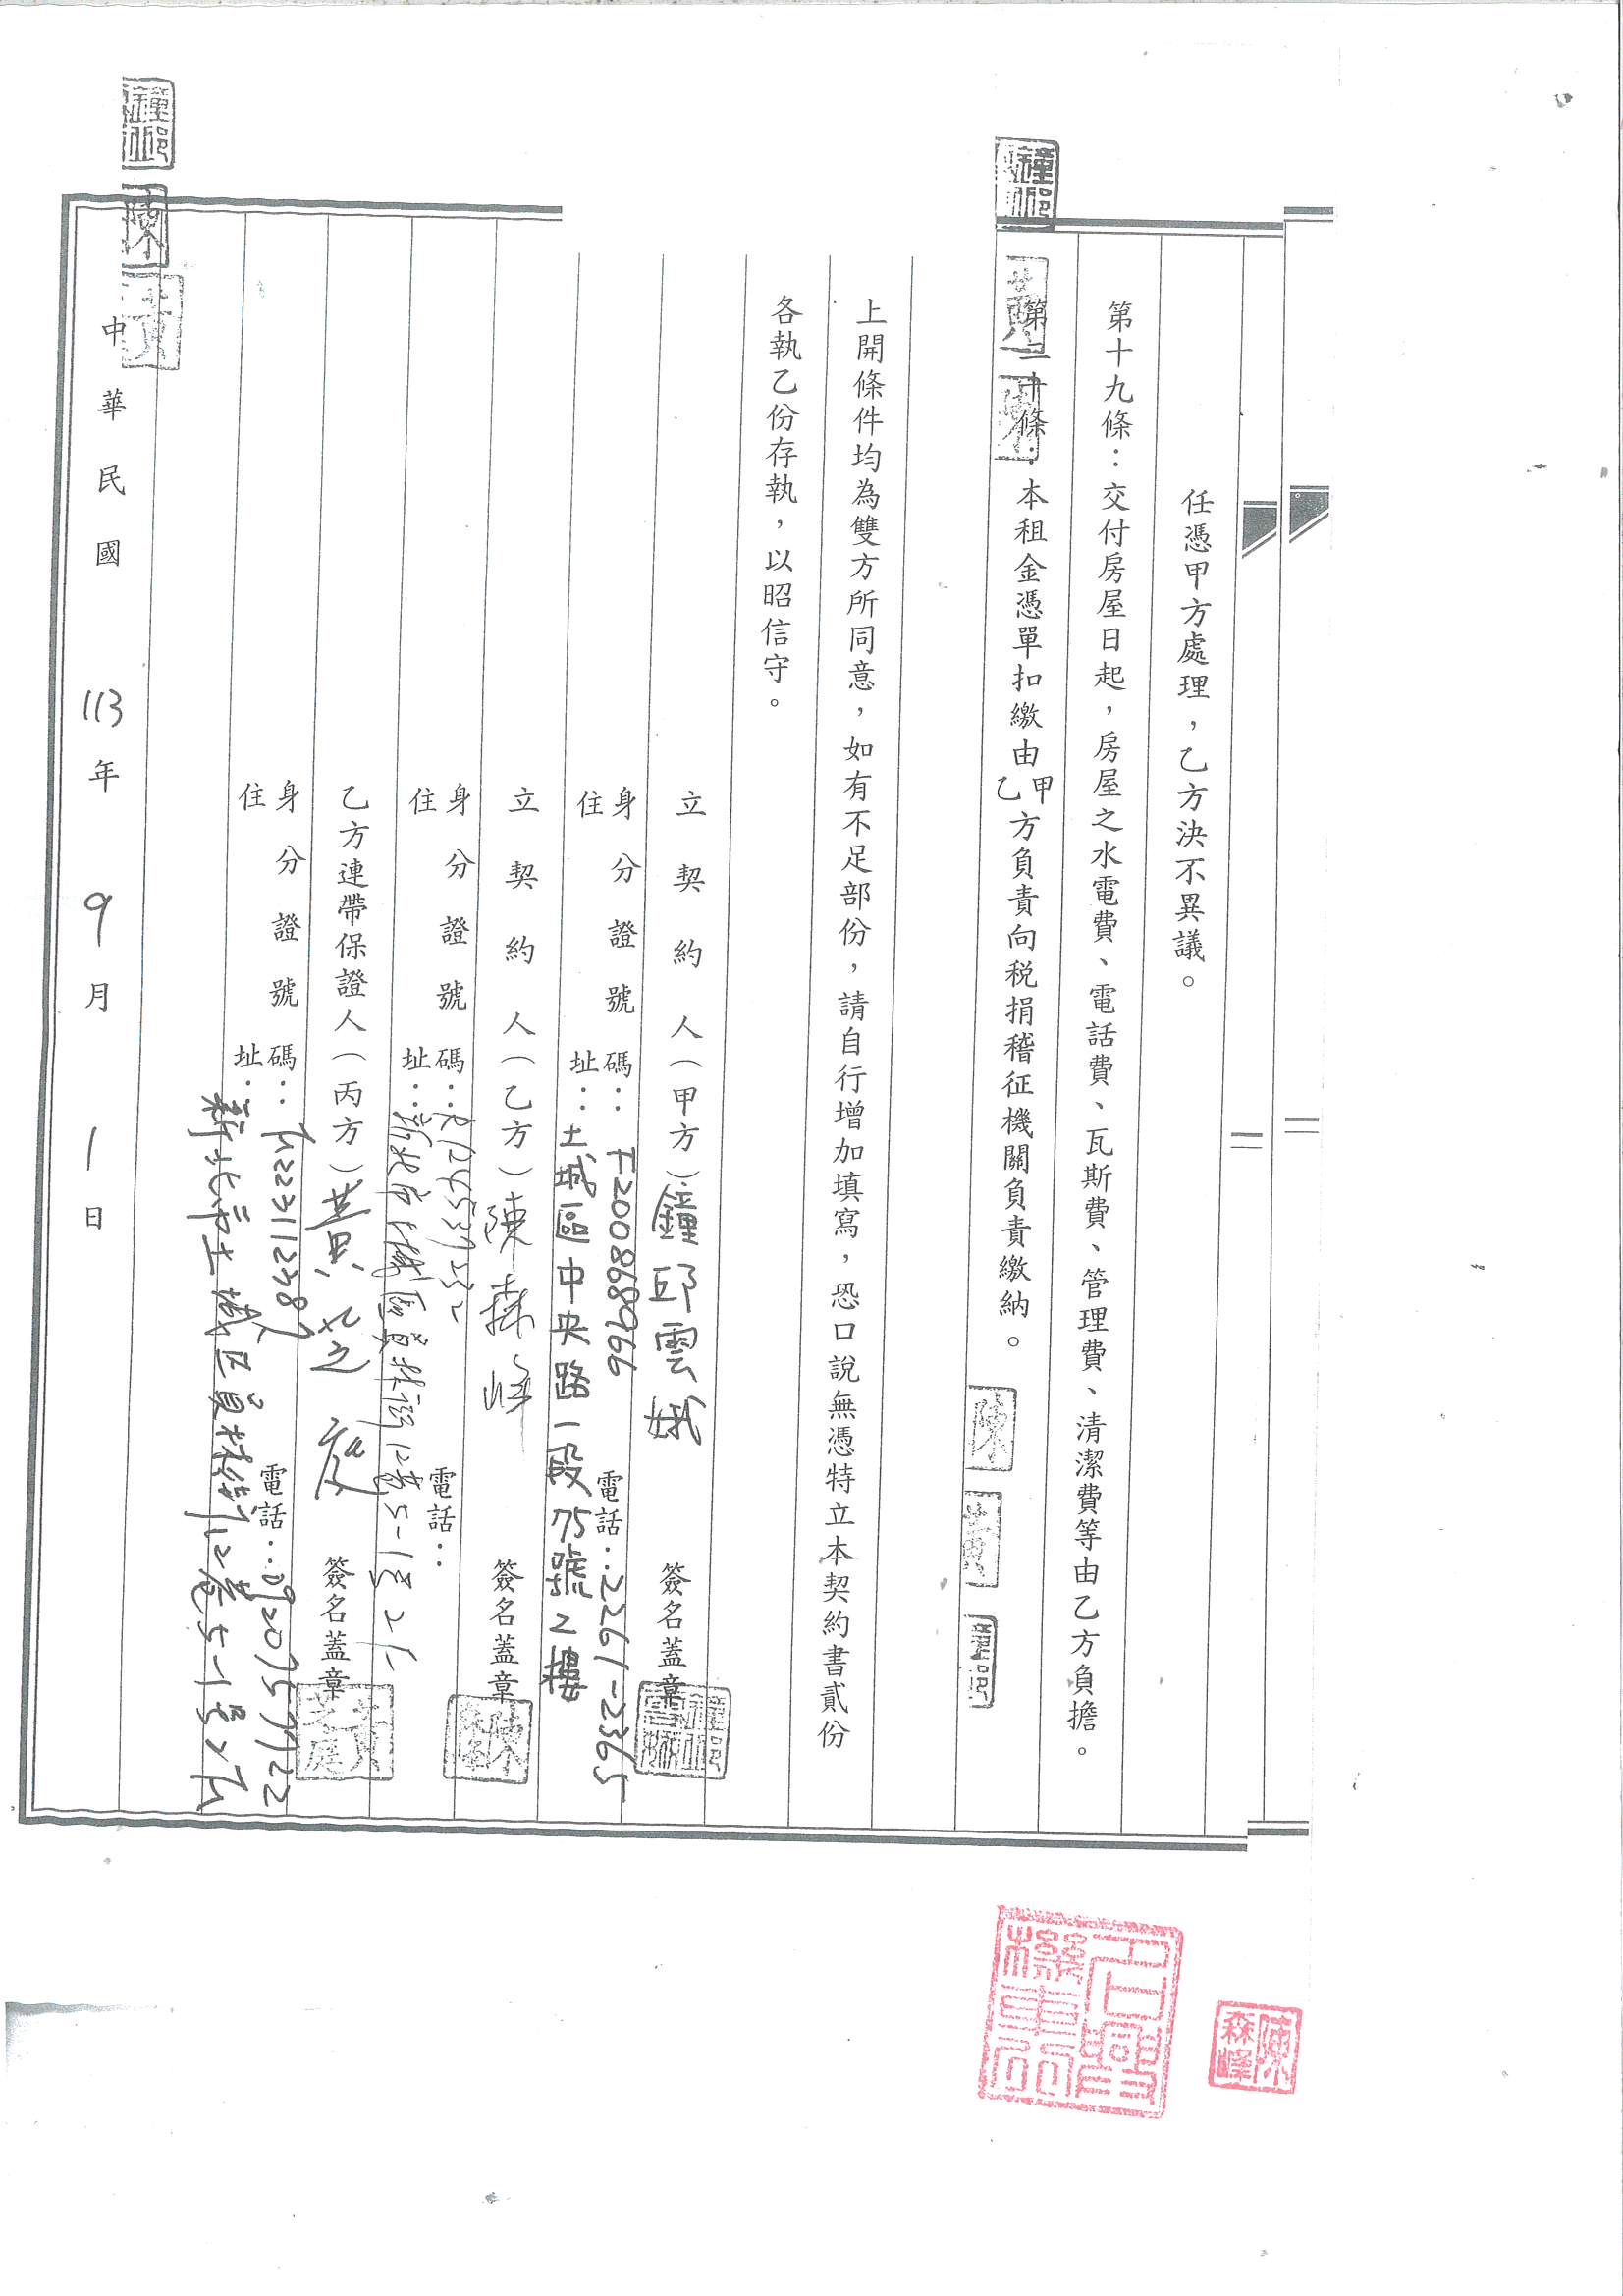 任憑甲方處理，乙方決不異議。
第十九條：交付房屋日起，房屋之水電費、電話費、瓦斯費、管理費、清潔費等由乙方負擔。
第二十條：本租金憑單扣繳由甲乙方負責向稅捐稽征機關負責繳納。
上開條件均為雙方所同意，如有不足部份，請自行增加填寫，恐口說無憑特立本契約書貳份
各執乙份存執，以昭信守。
立契約人（甲方）：鐘邱雲娥 簽名蓋章
身分證號碼：T200898966 電話：2261-2365
住址：土城區中央路一段75號2樓
立契約人（乙方）陳森峰 簽名蓋章
身分證號碼： 電話：
住址：新北市土城區員林街
乙方連帶保證人（丙方）黃芝庭 簽名蓋章
身分證號碼： 電話：
住址：新北市土城區員林街
中華民國113年9月1日
陳森峰